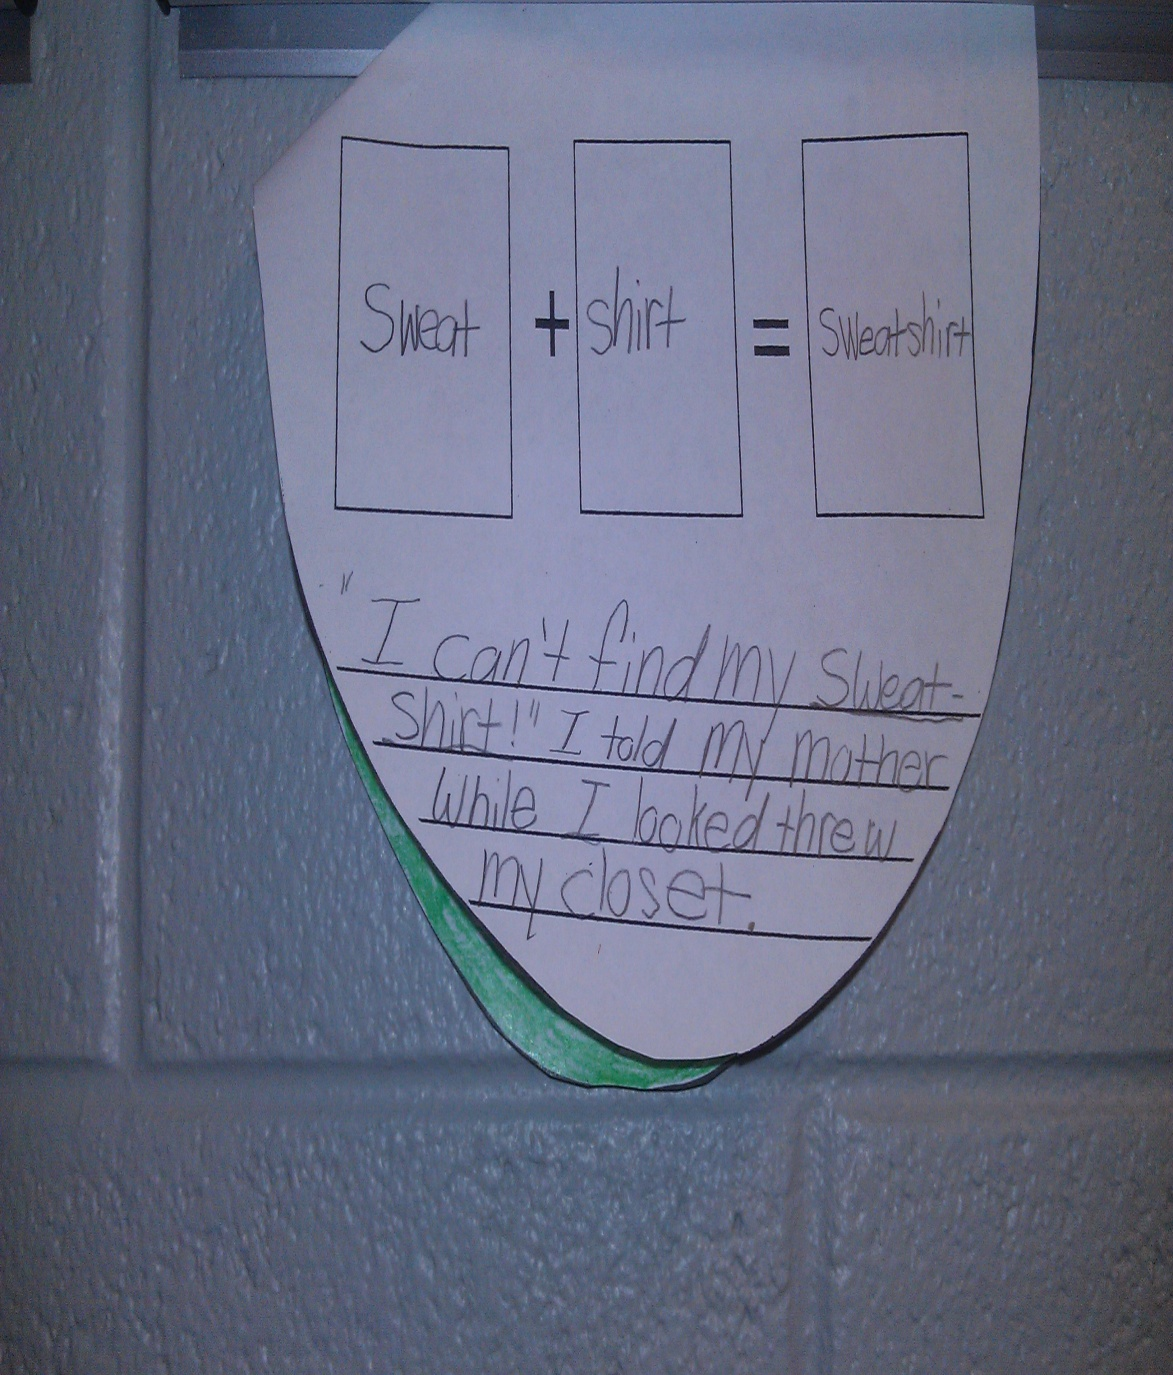 Sweat + shirt = Sweatshirt
"I can't find my Sweat-
shirt!" I told my mother
while I looked threw
my closet.